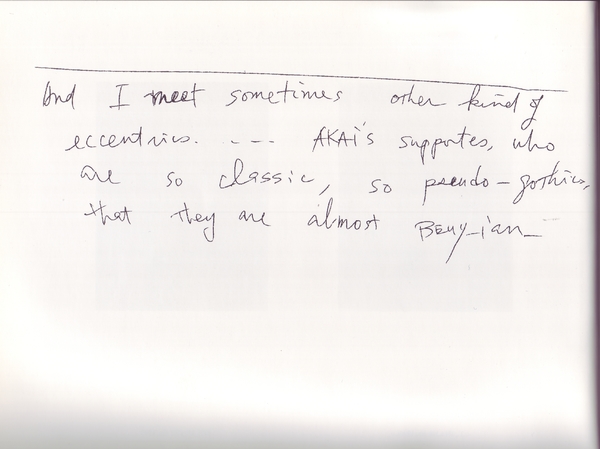 And I meet sometimes other kind of
eccentrics. ---- AKAI's supportes, who
are so classic, so pseudo-gothics,
that they are almost